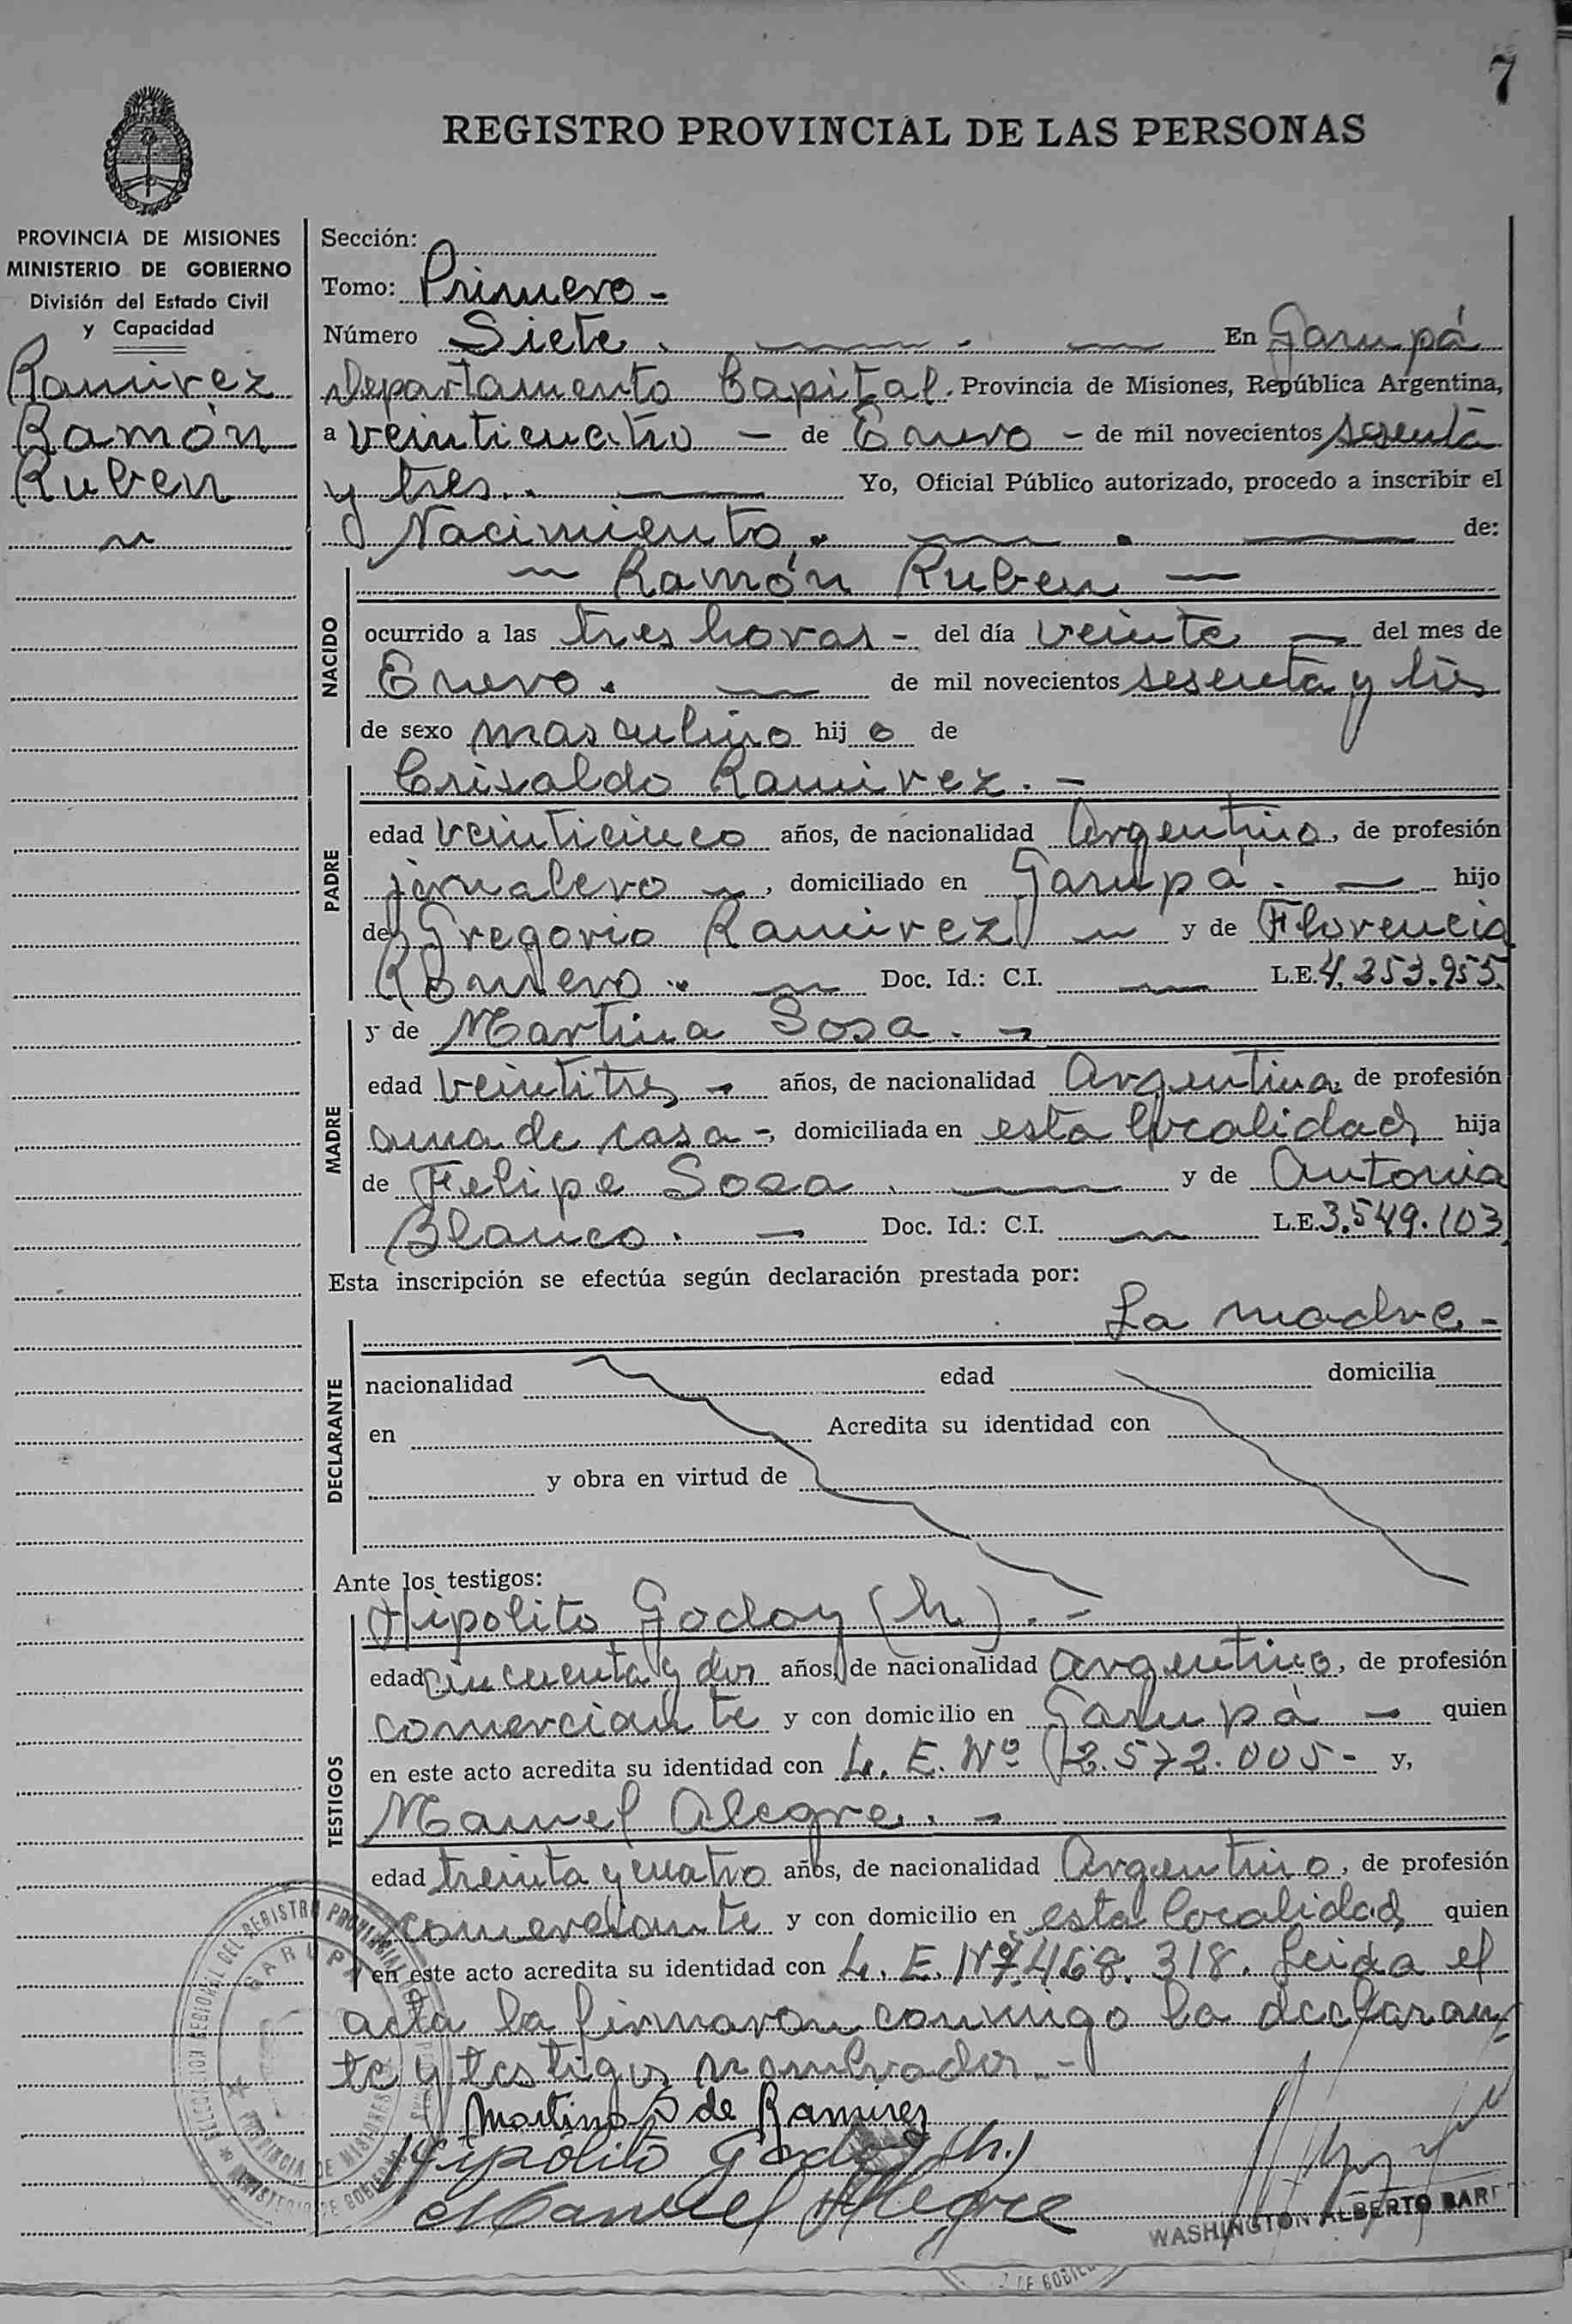 7
REGISTRO PROVINCIAL DE LAS PERSONAS
PROVINCIA DE MISIONES
MINISTERIO DE GOBIERNO
División del Estado Civil
y Capacidad
Ramirez
Ramón
Ruben
Sección:
Tomo: Primero -
Número Siete. En Garupá
Departamento Capital. Provincia de Misiones, República Argentina,
a veinticuatro - de Enero - de mil novecientos sesenta
y tres. Yo, Oficial Público autorizado, procedo a inscribir el
Nacimiento. de:
Ramón Ruben
NACIDO
ocurrido a las tres horas - del día veinte del mes de
Enero. de mil novecientos sesenta y tres
de sexo masculino hij o de
PADRE
Crisaldo Ramirez. -
edad veinticinco años, de nacionalidad Argentino, de profesión
jornalero, domiciliado en Garupá. hijo
de Gregorio Ramirez y de Florencia
Romero. Doc. Id.: C.I. L.E. 4.353.955.
MADRE
y de Martina Sosa. -
edad veintitres - años, de nacionalidad Argentina, de profesión
ama de casa -, domiciliada en esta localidad hija
de Felipe Sosa. y de Antonia
Blanco. - Doc. Id.: C.I. L.E. 3.549.103
Esta inscripción se efectúa según declaración prestada por:
La madre. -
DECLARANTE
nacionalidad edad domicilia
en Acredita su identidad con
y obra en virtud de
Ante los testigos:
TESTIGOS
Hipolito Godoy (h). -
edad cincuenta y dos años, de nacionalidad argentino, de profesión
comerciante y con domicilio en Garupá - quien
en este acto acredita su identidad con L. E. Nº 2.572.005 - y,
Manuel Alegre. -
edad treinta y cuatro años, de nacionalidad Argentino, de profesión
comerciante y con domicilio en esta localidad quien
en este acto acredita su identidad con L. E. Nº 7.468.318. Leida el
acta la firmaron conmigo la declaran-
te y testigos nombrados. -
Martina S de Ramirez
Hipólito Godoy (h.)
Manuel Alegre
WASHINGTON ALBERTO
DELEGACION REGIONAL DEL REGISTRO PROVINCIAL
GARUPA
PROVINCIA DE MISIONES
MINISTERIO DE GOBIERNO